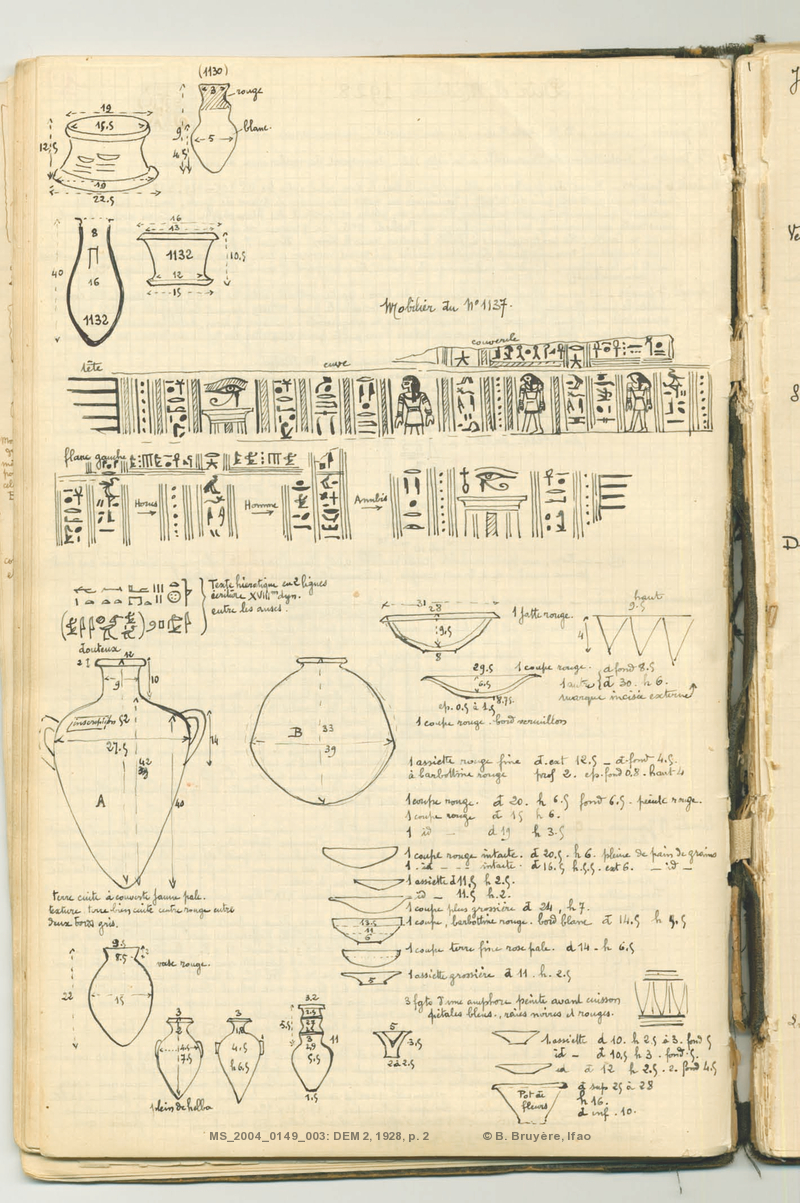 (1130)
19
15.5
12.5
19
22.5
3
rouge
blanc.
9
5
4.5
8
40
16
1132
16
13
1132
10.5
12
15
Mobilier du N° 1137.
couvercle
tête
cuve
flanc gauche
Horus
Homme
Anubis
Texte hiératique en 2 lignes
écriture XVIIIme dyn.
entre les anses.
douteux
31
28
9,5
8
1 jatte rouge.
haut
9.5
4
29.5
1 coupe rouge. d fond 8.5
1 autre d 30. h 6.
marque incisée externe
ep. 0.5 à 1.5
1 coupe rouge. bord vermillon
2
12
9
10
inscription
52
27.5
42
39
24
40
A
B
33
39
1 assiette rouge fine d. ext 12.5 _ d. fond 4.5.
à barbotine rouge prof 2. ep. fond 0.8. haut 4
1 coupe rouge. d 20. h 6.5 fond 6.5. peinte rouge.
1 coupe rouge d 15 h 6.
1 id - d 19 h 3.5
1 coupe rouge intacte. d 20.5. h 6. pleine de pain de grains
1 . id _ _ _ intacte. d 16.5 h.5.5. ext 6. _ id _
1 assiette d 11,5 h 2.5.
_ id _ 11.5 h. 2.
1 coupe plus grossière d 24, h 7.
1 coupe, barbotine rouge. bord blanc d 14.5 h 5,5
13.5
11
6
1 coupe terre fine rose pale. d 14 - h 6,5
1 assiette grossière d 11. h. 2.5
5
terre cuite à couverte jaune pale.
texture. terre bien cuite centre rouge entre
deux bords gris.
3 fgts d'une amphore peinte avant cuisson
pétales bleus., raies noires et rouges.
9.5
8.5
vase rouge.
22
15
3
7.5
1 plein de helba
3
4.5
h 6.5
3.2
5.5
11
5.5
1.5
5
3.5
2 à 2.5
1. assiette d 10. h 2.5 à 3. fond 5
id - d 10,5 h 3. fond. 5.
id d 12 h 2.5. 2. fond 4.5
Pot à
fleurs
d sup 25 à 28
h 16.
d inf. 10.
MS_2004_0149_003: DEM 2, 1928, p. 2
© B. Bruyère, Ifao